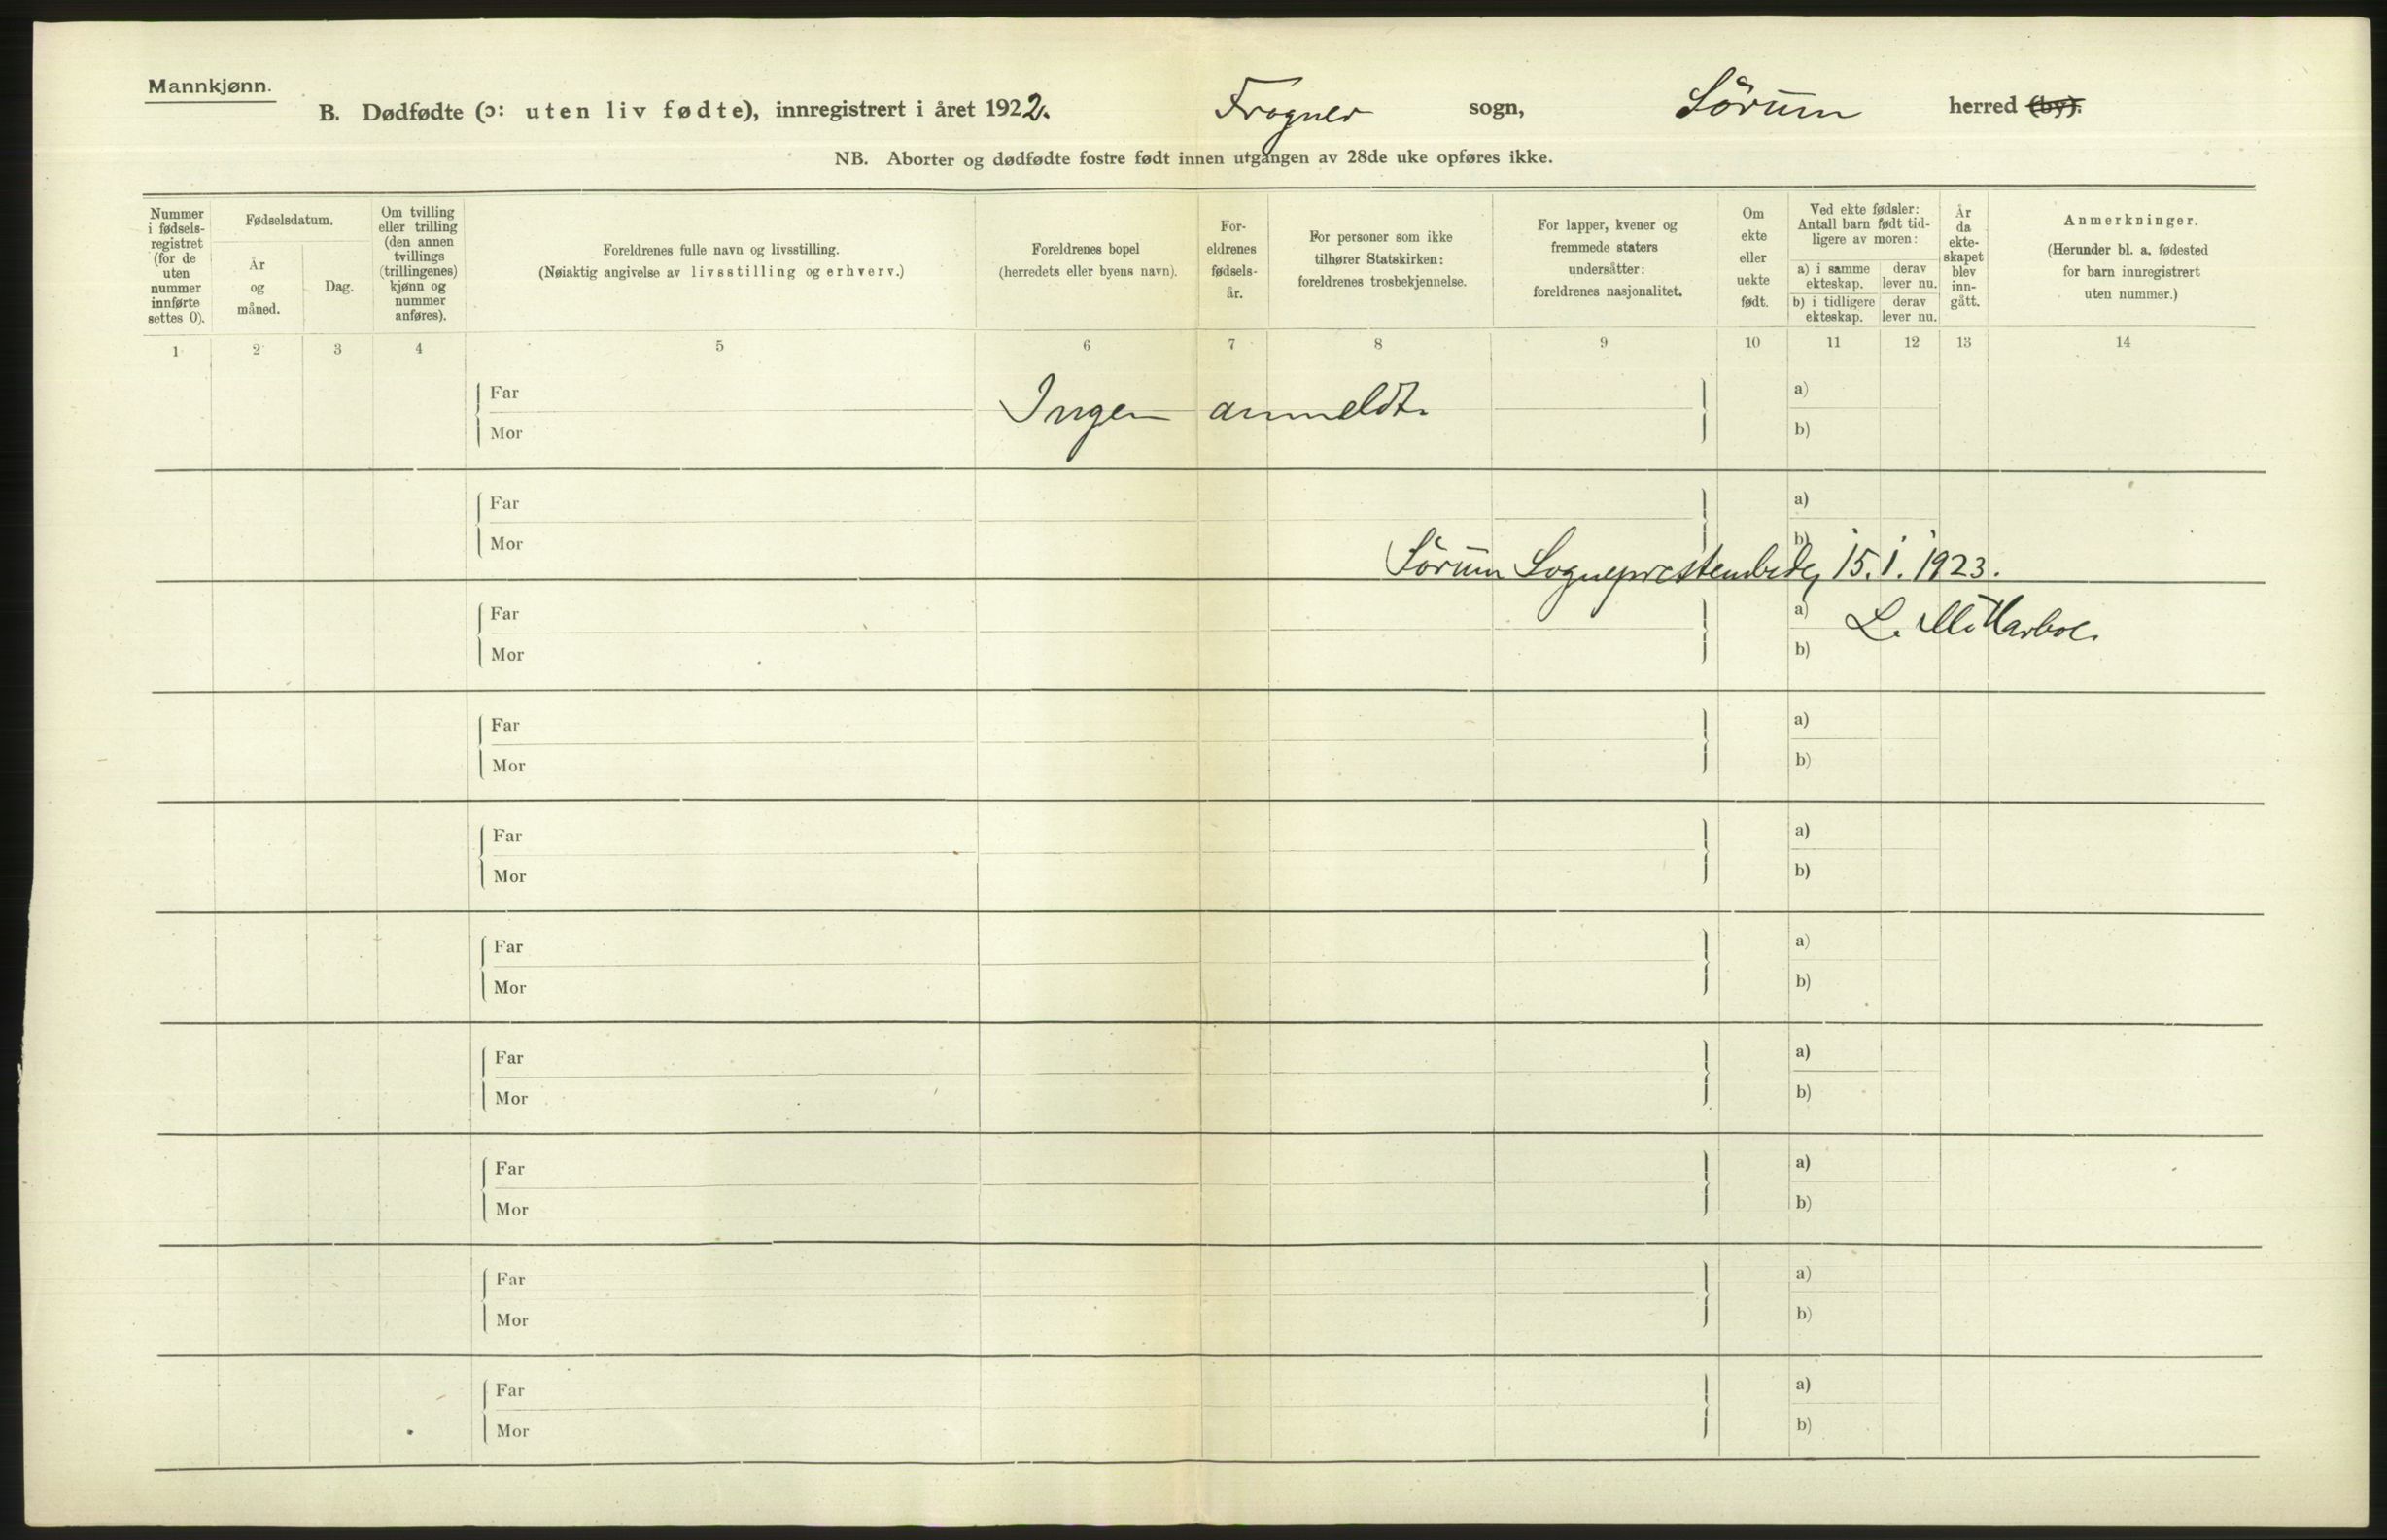 Mannkjønn.
B. Dødfødte (ɔ: uten liv fødte), innregistrert i året 1922. Frogner sogn, Sörum herred (by).
NB. Aborter og dødfødte fostre født innen utgangen av 28de uke opføres ikke.
Nummer i fødsels-registret (for de uten nummer innførte settes 0).
Fødselsdatum.
År og måned.
Dag.
Om tvilling eller trilling (den annen tvillings (trillingenes) kjønn og nummer anføres).
Foreldrenes fulle navn og livsstilling.
(Nøiaktig angivelse av livsstilling og erhverv.)
Foreldrenes bopel
(herredets eller byens navn).
For-eldrenes fødsels-år.
For personer som ikke tilhører Statskirken: foreldrenes trosbekjennelse.
For lapper, kvener og fremmede staters undersåtter: foreldrenes nasjonalitet.
Om ekte eller uekte født.
Ved ekte fødsler: Antall barn født tid-ligere av moren:
a) i samme ekteskap.
derav lever nu.
b) i tidligere ekteskap.
derav lever nu.
År da ekte-skapet blev inn-gått.
Anmerkninger.
(Herunder bl. a. fødested for barn innregistrert uten nummer.)
1 2 3 4 5 6 7 8 9 10 11 12 13 14
Far Ingen anmeldt. a)
Mor b)
Far a)
Mor b)
Sörum Sogneprestembede, 15.1.1923.
Far a) L. M. Harboe.
Mor b)
Far a)
Mor b)
Far a)
Mor b)
Far a)
Mor b)
Far a)
Mor b)
Far a)
Mor b)
Far a)
Mor b)
Far a)
Mor b)